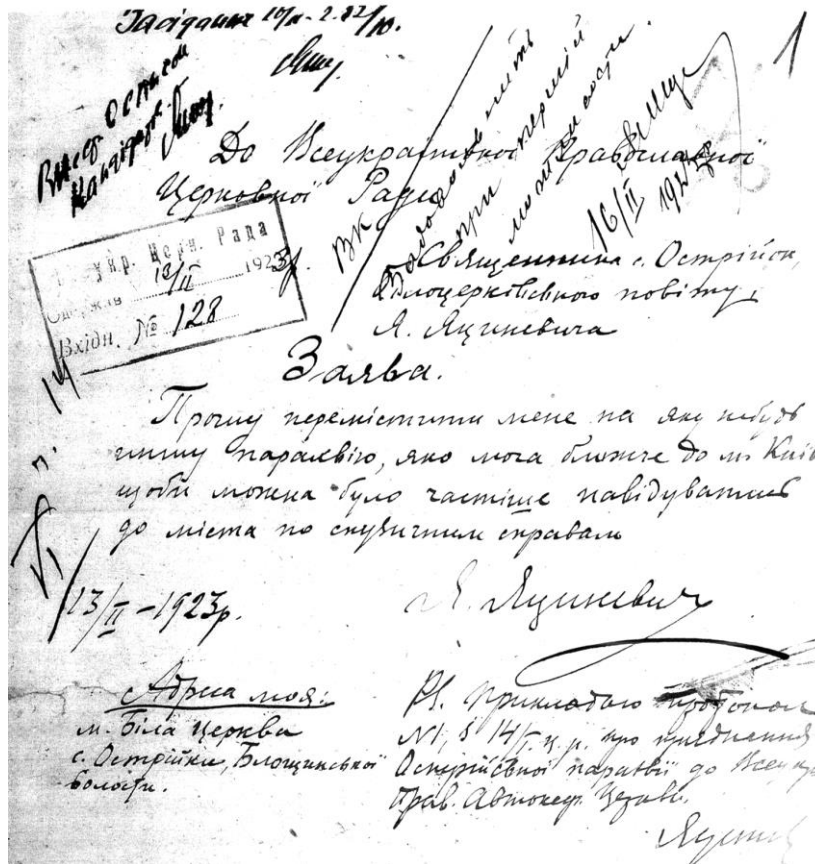 Засідання 10/II - 2.22/10.
До Всеукраїнської Православної
Церковної Ради
при першій
можливости.
16/II 1923р
1
Укр. Церк. Рада
13/II 1923р.
Вхідн. № 128
Священника с. Острійок,
Білоцерківського повіту,
Я. Яциневича
Заява.
Прошу перемістити мене на яку небудь
иншу парахвію, яко мога ближче до м. Київ
щоби можна було частіше навідуватись
до міста по музичним справам
VI п. 14
13/II - 1923р.
Я. Яциневич
Адреса моя:
м. Біла Церква
с. Острійки, Блощинської
волости.
PS. Прикладаю протокол
№1, § 14/I ц.р. про приєднання
Острійської парахвії до Всеукр
Прав. Автокеф. Церкви.